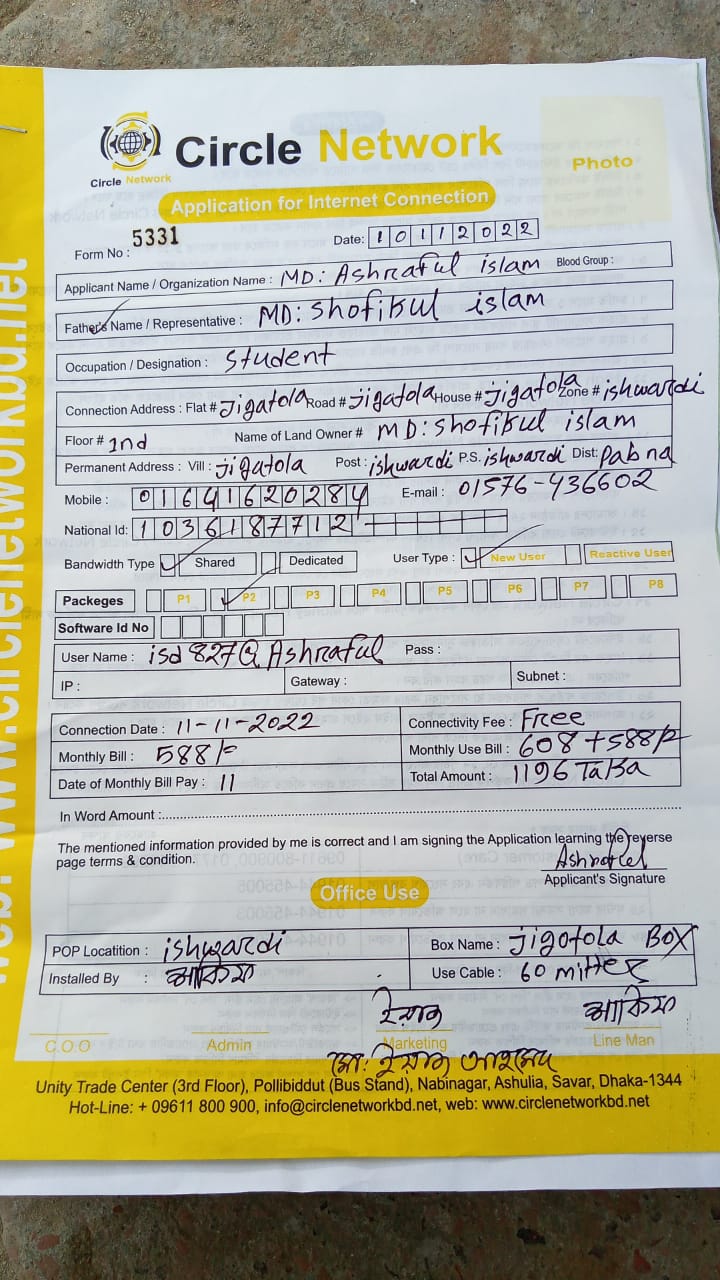 Circle Network
Circle Network
Photo
Application for Internet Connection
Form No : 5331
Date: 10112022
Applicant Name / Organization Name : MD: Ashraful islam Blood Group :
Father's Name / Representative : MD: Shofikul islam
Occupation / Designation : Student
Connection Address : Flat # Jigatola Road # Jigatola House # Jigatola Zone # ishwardi
Floor # 2nd Name of Land Owner # MD: Shofikul islam
Permanent Address : Vill : Jigatola Post : ishwardi P.S. ishwardi Dist: Pabna
Mobile : 01641620284 E-mail : 01576-436602
National Id: 1036187712
Bandwidth Type Shared Dedicated User Type : New User Reactive User
Packeges P1 P2 P3 P4 P5 P6 P7 P8
Software Id No
User Name : isd827@Ashraful Pass :
IP : Gateway : Subnet :
Connection Date : 11-11-2022 Connectivity Fee : Free
Monthly Bill : 588/= Monthly Use Bill : 608+588/=
Date of Monthly Bill Pay : 11 Total Amount : 1196 Taka
In Word Amount :
The mentioned information provided by me is correct and I am signing the Application learning the reverse
page terms & condition.
Ashraful
Applicant's Signature
Office Use
POP Locatition : ishwardi Box Name : Jigotola BOX
Installed By : আকিফ Use Cable : 60 mitter
আকিফ
C.O.O Admin Marketing Line Man
Unity Trade Center (3rd Floor), Pollibiddut (Bus Stand), Nabinagar, Ashulia, Savar, Dhaka-1344
Hot-Line: + 09611 800 900, info@circlenetworkbd.net, web: www.circlenetworkbd.net
web: www.circlenetworkbd.net